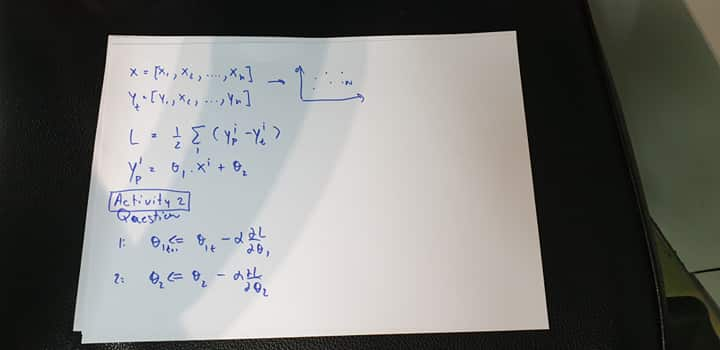 X = [x₁, x₂, ..., xₙ] → N
Yₜ = [y₁, x₂, ..., yₙ]
L = 1/2 Σᵢ (yₚⁱ - yₜⁱ)
yₚⁱ = θ₁ . xⁱ + θ₂
Activity 2
Question
1: θ₁ₜ₊₁ <= θ₁ₜ - α ∂L/∂θ₁
2: θ₂ <= θ₂ - α ∂L/∂θ₂